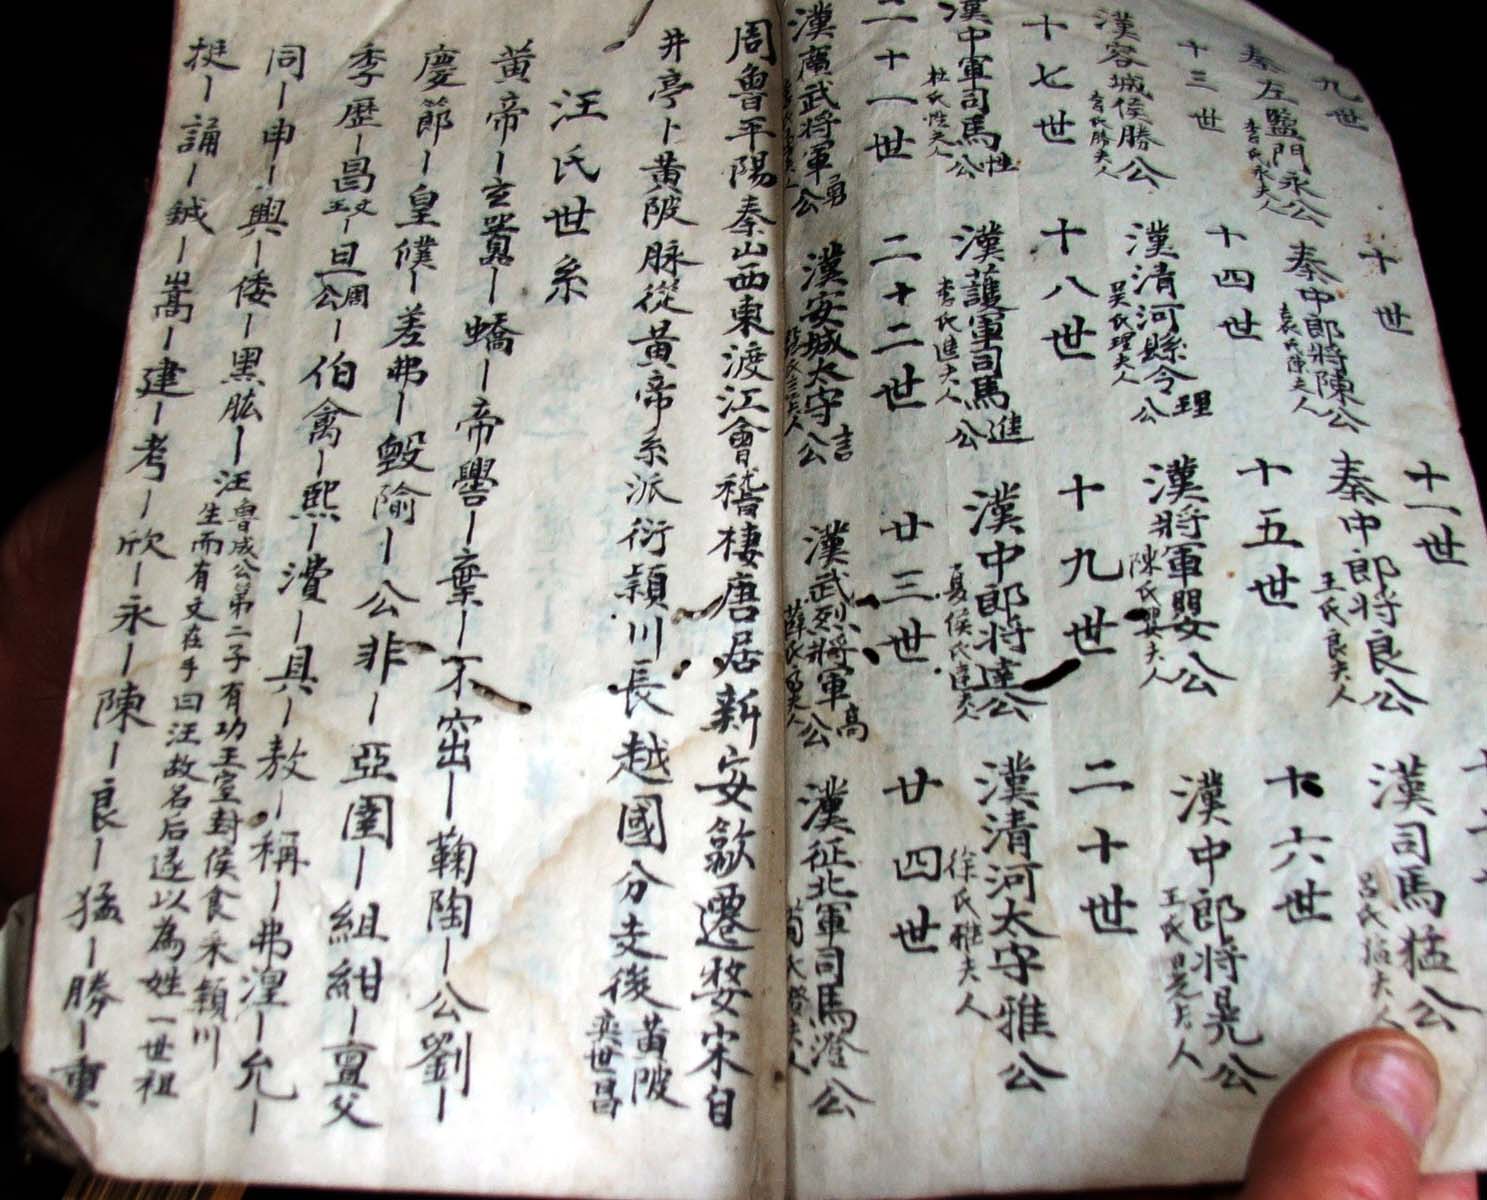 九世
十世
十一世
秦左監門永公
李氏永夫人
秦中郎將陳公
袁氏陳夫人
秦中郎將良公
王氏良夫人
漢司馬猛公
呂氏猛夫人
十三世
十四世
十五世
十六世
漢容城侯勝公
李氏勝夫人
漢清河縣令理公
吴氏理夫人
漢將軍嬰公
陳氏嬰夫人
漢中郎將晃公
王氏晃夫人
十七世
十八世
十九世
二十世
漢中軍司馬性公
杜氏性夫人
漢護軍司馬進公
李氏進夫人
漢中郎將達公
夏侯氏達夫人
漢清河太守雅公
徐氏雅夫人
二十一世
二十二世
廿三世
廿四世
漢廣武將軍勇公
漢安城太守吉公
漢武烈將軍高公
薛氏高夫人
漢征北軍司馬澄公
周魯平陽秦山西東渡江會稽棲唐居新安歙遷婺宋自
井亭卜黄陂脉從黄帝系派衍潁川長越國分支後黄陂奕世昌
汪氏世系
黄帝－玄囂－蟜－帝嚳－棄－不窋－鞠陶－公劉－
慶節－皇僕－差弗－毀隃－公非－亞圉－組紺－亶父
季歷－昌文王－旦周公－伯禽－熙－潰－具－敖－稱－弗湟－允－
同－申－興－倭－黑肱－汪魯成公第二子有功王室封侯食采潁川
生而有文在手曰汪故名后遂以為姓一世祖
挺－誦－鋮－嵩－建－考－欣－永－陳－良－猛－勝－重